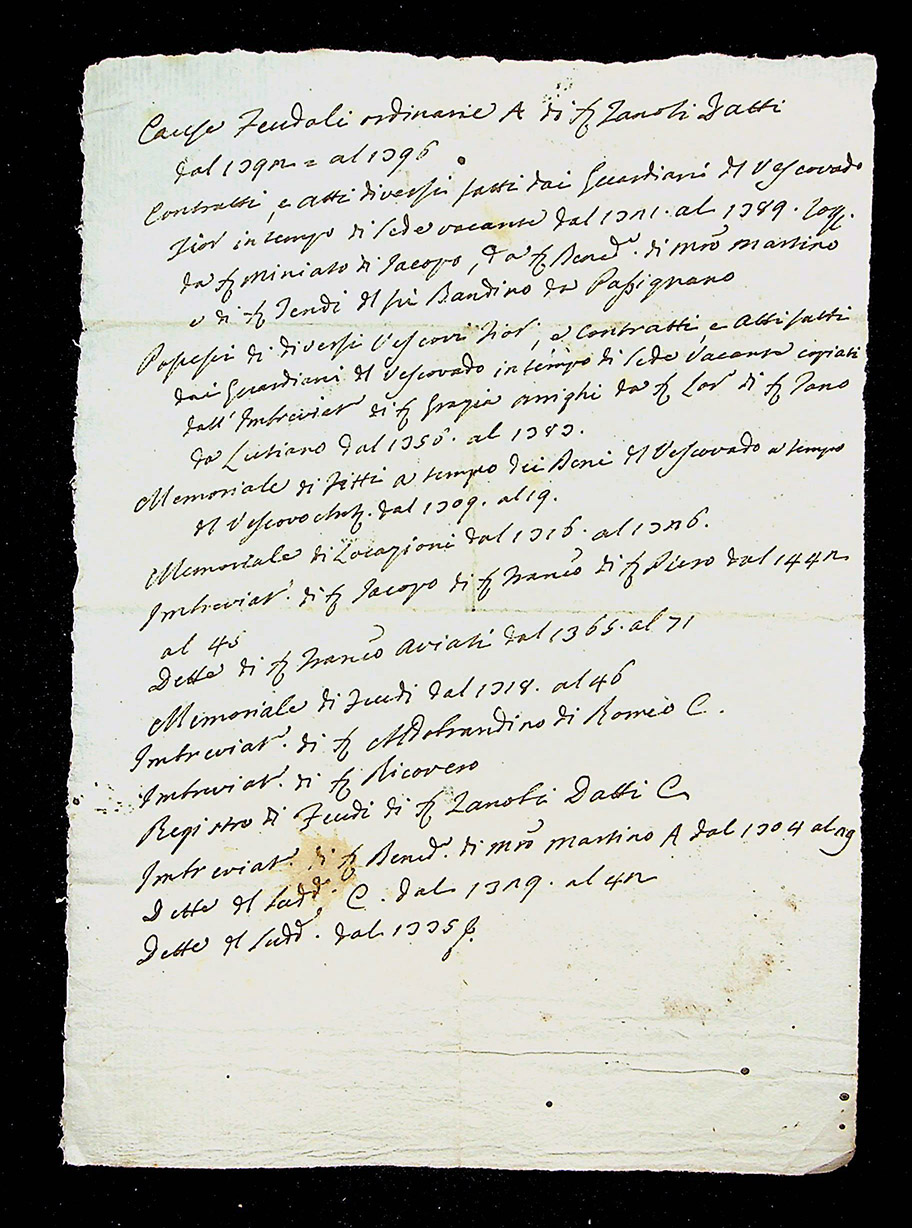 Cause Feudali ordinarie A di S. Zanobi Datti
dal 1392 = al 1396
Contratti, e atti diversi fatti dai Guardiani del Vescovado
Fior in tempo di sede vacante dal 1321. al 1389. Rog.
da S. Miniato di Jacopo, da S. Bened. di Mro Martino
e di S. Fendi del sù Bandino da Passignano
Possessi di diversi Vescovi Fior., e Contratti, e atti fatti
dai Guardiani del Vescovado in tempo di sede Vacante copiati
dall' Imbreviat. di S. Grazia Arrighi da S. Lor. di S. Tano
da Lutiano dal 1356. al 1383.
Memoriale di Fitti a tempo dei Beni del Vescovado a tempo
del Vescovo Ant. dal 1309. al 19.
Memoriale di Locazioni dal 1316. al 1326.
Imbreviat. di S. Jacopo di S. Franco di S. Piero dal 1442
al 45
Dette di S. Franco Aviati dal 1365. al 71
Memoriale di Feudi dal 1318. al 46
Imbreviat. di S. Aldobrandino di Romeo C.
Imbreviat. di S. Ricovero
Registro di Feudi di S. Zanobi Datti C
Imbreviat. di S. Bened. di Mro Martino A dal 1304 al 29
Dette del sudd. C. dal 1329. al 42
Dette del sudd. dal 1335